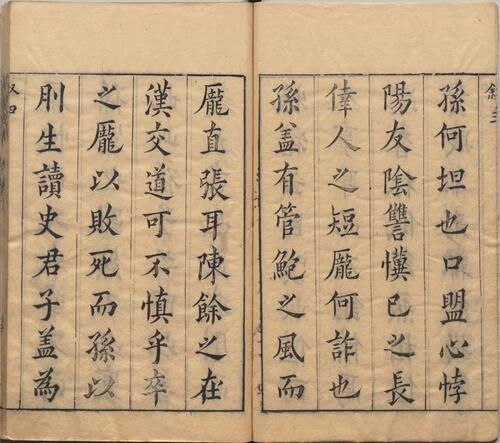 孫何坦也口盟心悖
陽友陰讐懻已之長
偉人之短龐何詐也
孫盖有管鮑之風而
龐直張耳陳餘之在
漢交道可不慎乎卒
之龐以敗死而孫以
刖生讀史君子盖為